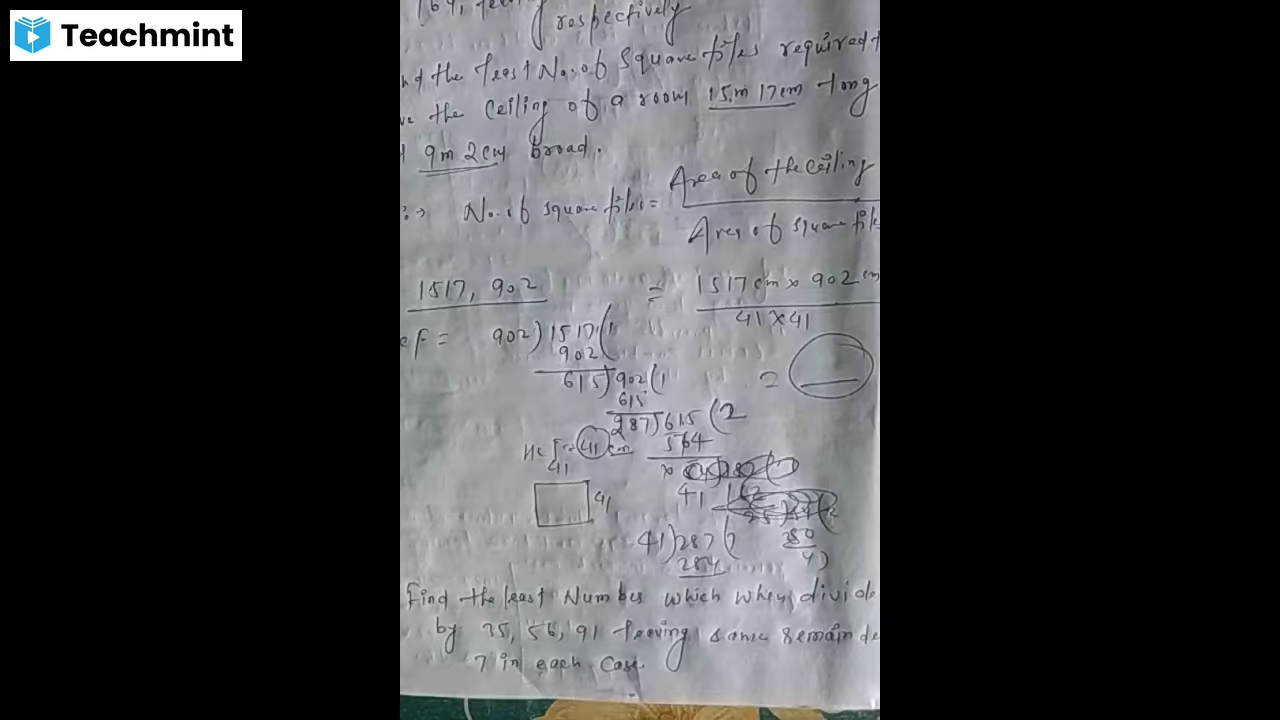 Teachmint
respectively
the least No. of square tiles required
the ceiling of a room 15m 17cm long
9m 2cm broad.
No. of square tiles = Area of the ceiling
Area of square
1517, 902
= 1517cm x 902 cm
41 x 41
902)1517(1
902
615)902(1
615
287)615(2
564
41 cm
41
41
41
=
41)287(7
Find the least Number which when divide
by 35, 56, 91 leaving same remainde
7 in each case.